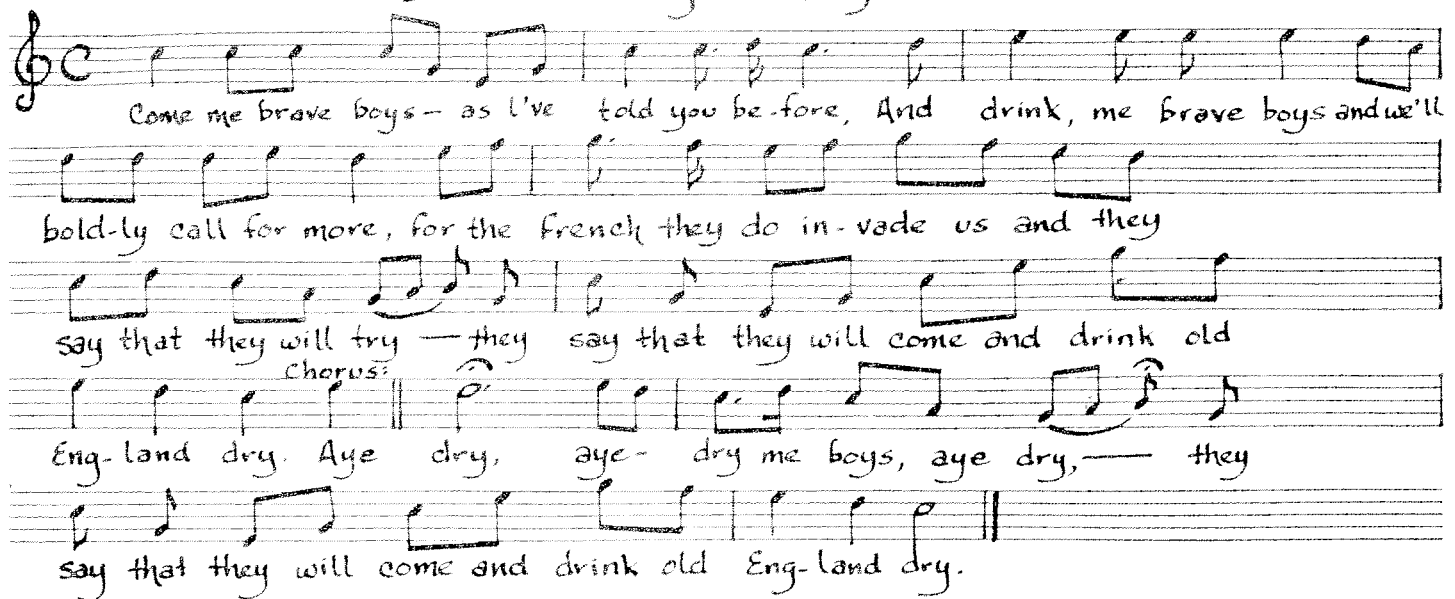 Come me brave boys- as I've told you be-fore, And drink, me brave boys and we'll
bold-ly call for more, for the french they do in-vade us and they
say that they will try — they say that they will come and drink old
Chorus:
Eng-land dry. Aye dry, aye- dry me boys, aye dry, — they
say that they will come and drink old Eng-land dry.